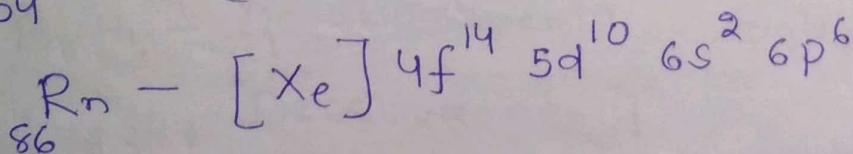 54
₈₆Rn - [Xe] 4f¹⁴ 5d¹⁰ 6s² 6p⁶